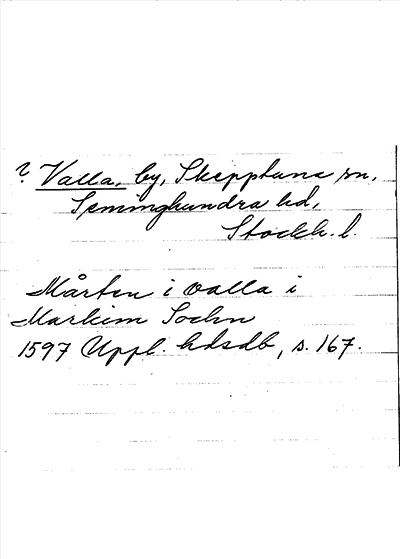 ? Valla, by, Skepptuna sn,
Seminghundra hd,
Stockh. l.
Mårten i valla i
Markim Sochn
1597 Uppl. hdsdb, s. 167.